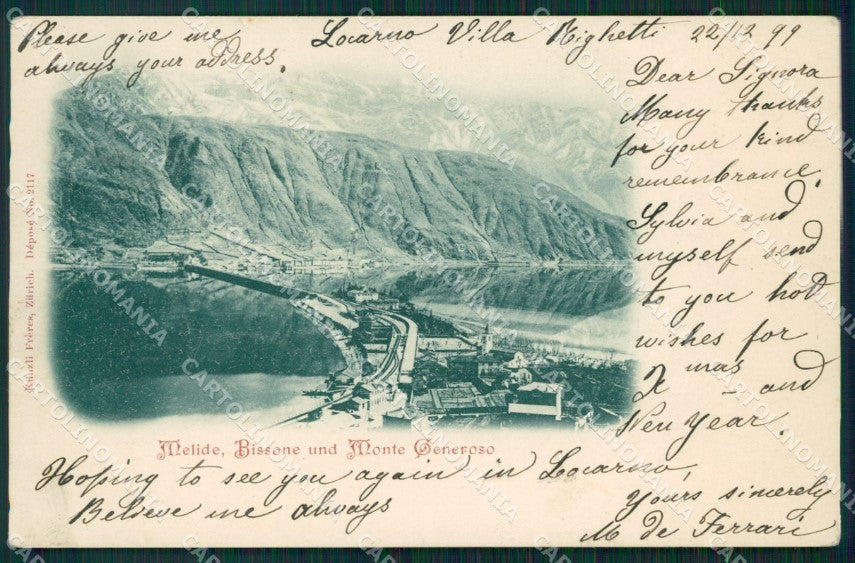 Please give me
always your address.
Locarno Villa Righetti 22/12 99
Dear Signora
Many thanks
for your kind
remembrance.
Sylvia and
myself send
to you hot
wishes for
X mas and
New Year.
Künzli Frères, Zürich. Déposé No. 2117
Melide, Bissone und Monte Generoso
Hoping to see you again in Locarno,
Believe me always
Yours sincerely
M de Ferrari
CARTOLINOMANIA